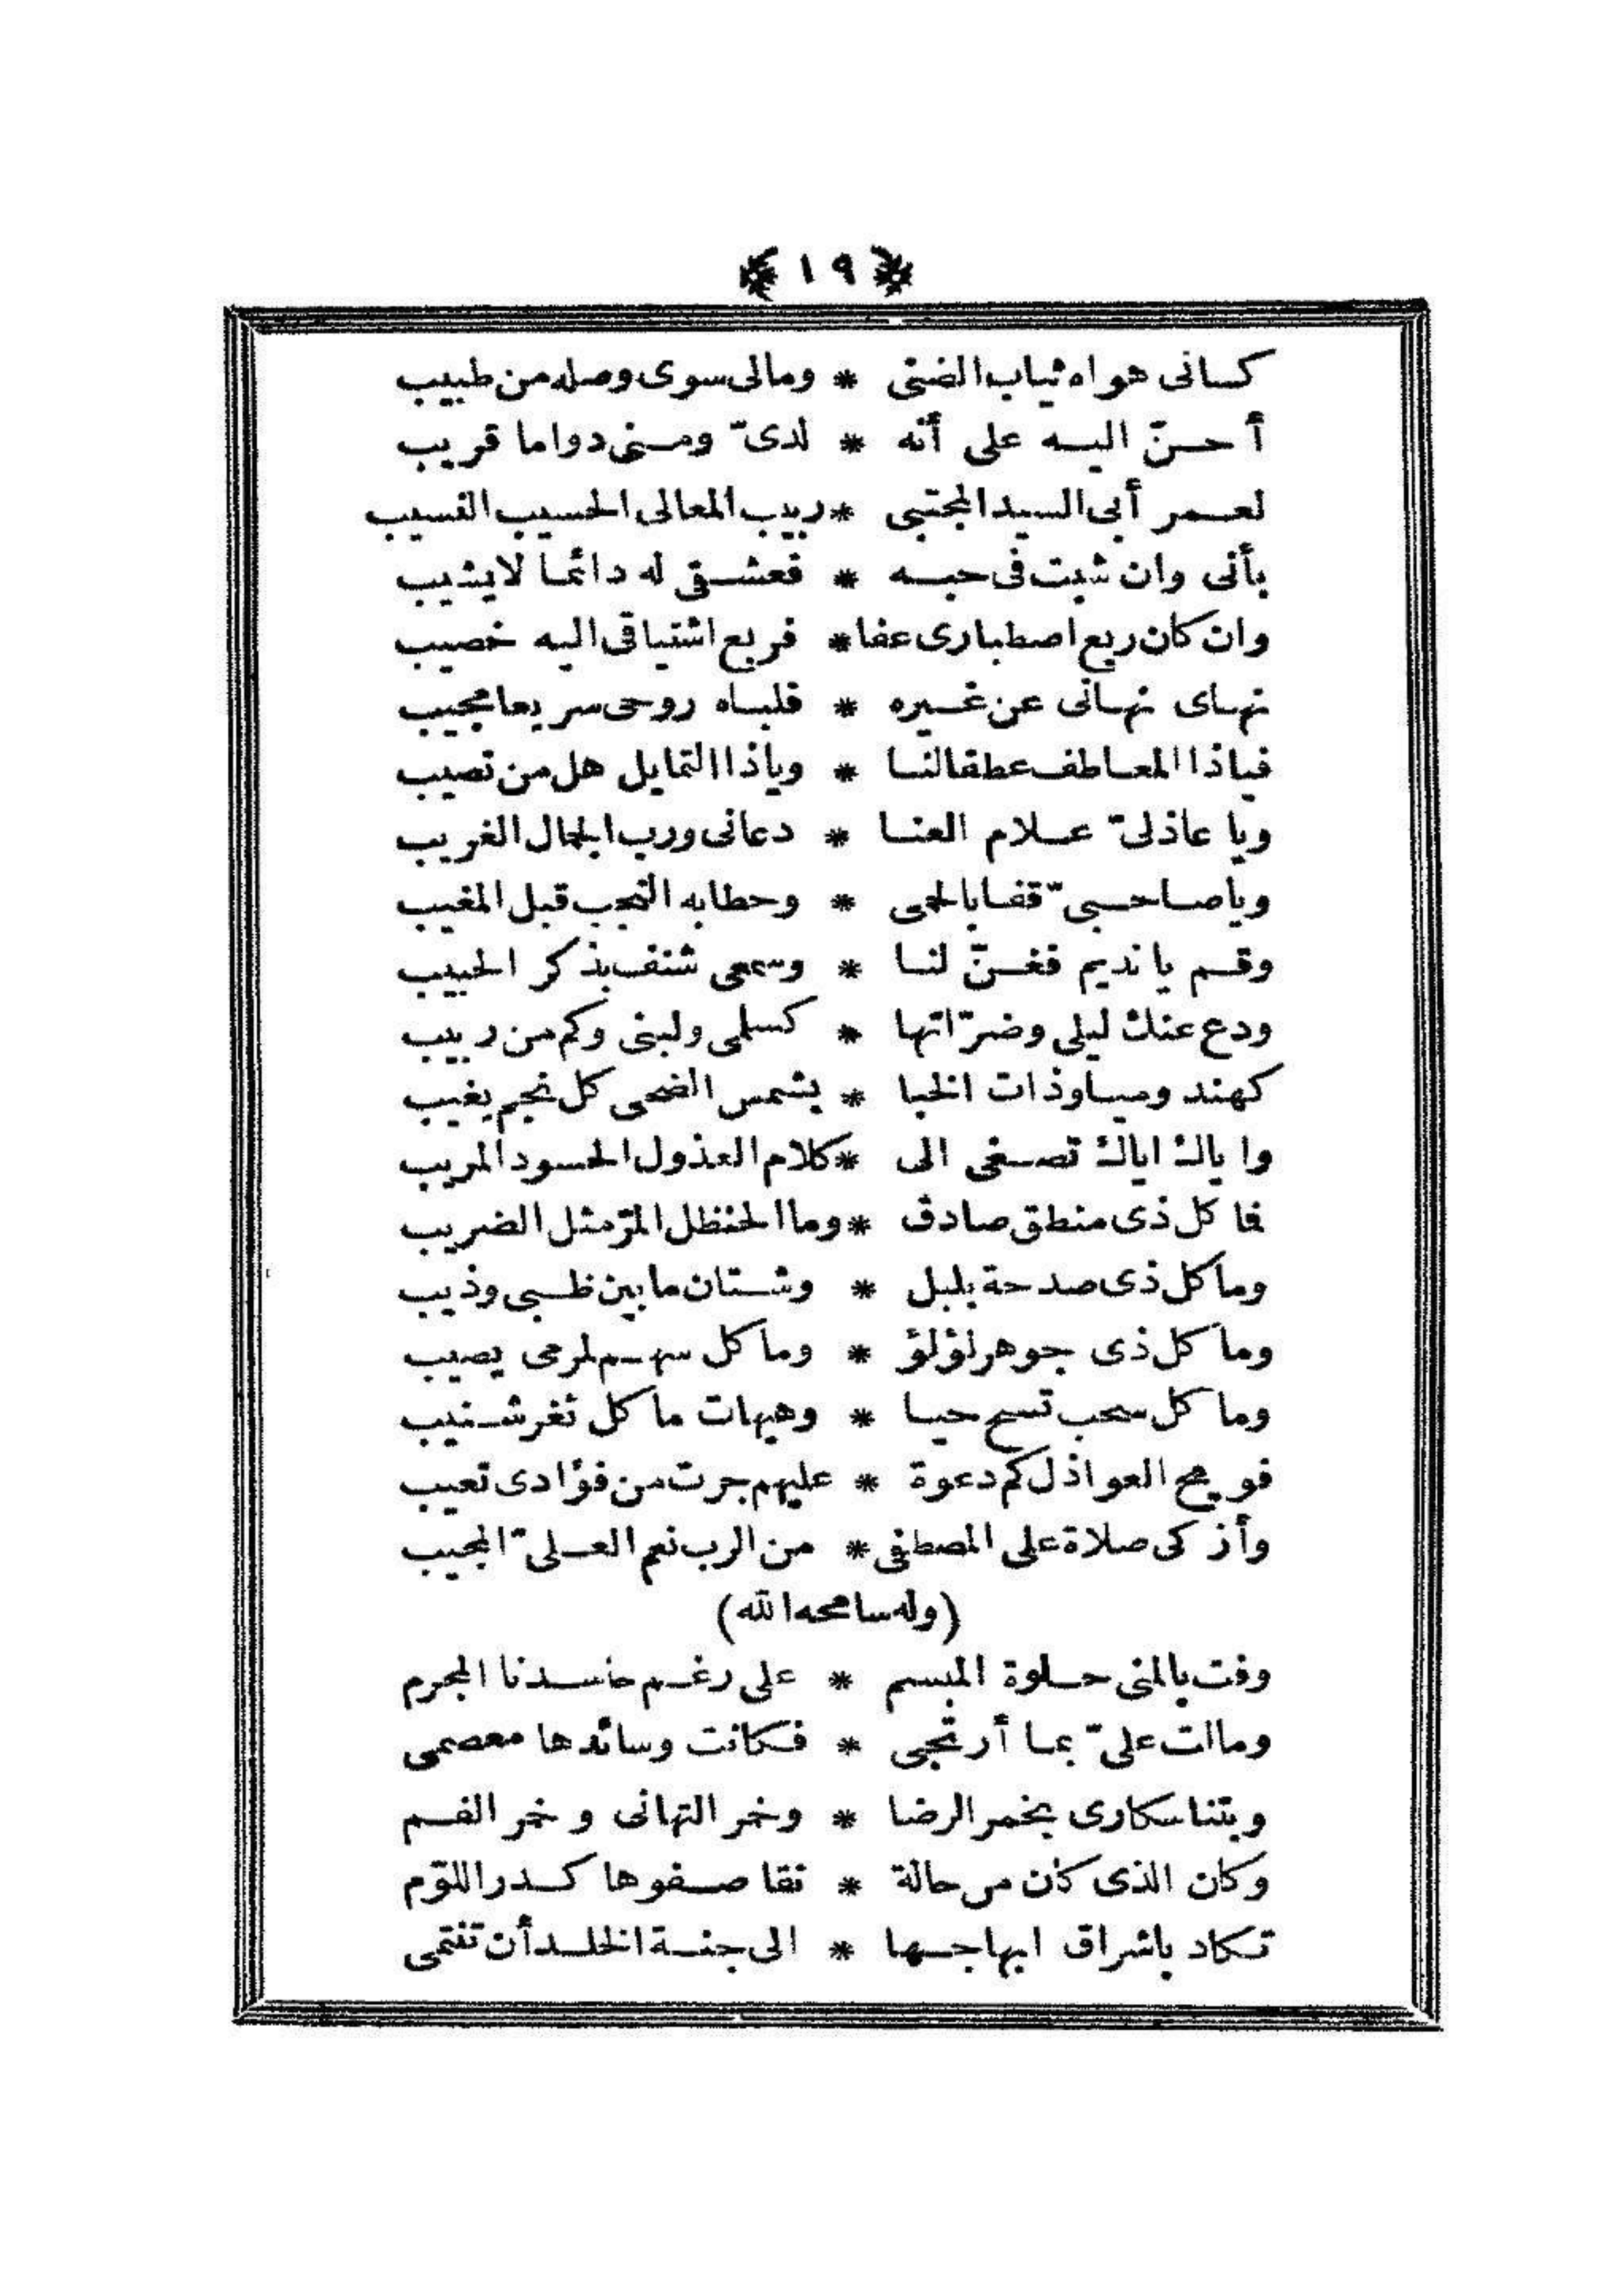 ﴿ ١٩ ﴾
كسانى هواه ثياب الضنى * ومالى سوى وصله من طبيب
أحنّ اليه على أنه * لدىّ ومنى دواما قريب
لعمر أبى السيد المجتبى * ربيب المعالى الحسيب النسيب
بأنى وان شبت فى حبه * فعشقى له دائما لا يشيب
وان كان ربع اصطبارى عفا * فربع اشتياقى اليه خصيب
نهاى نهانى عن غيره * فلباه روحى سريعا مجيب
فياذا المعاطف عطفا لنا * وياذا التمايل هل من نصيب
ويا عاذلىّ علام العنا * دعانى ورب الجمال الغريب
ويا صاحبىّ قفا بالحمى * وحطا به النجب قبل المغيب
وقم يا نديم فغنّ لنا * وسمعى شنف بذكر الحبيب
ودع عنك ليلى وضرّاتها * كسلمى ولبنى وكم من ربيب
كهند ومياوذات الخبا * بشمس الضحى كل نجم يغيب
واياك اياك تصغى الى * كلام العذول الحسود المريب
فما كل ذى منطق صادق * وما الحنظل المرّ مثل الضريب
وما كل ذى صدحة بلبل * وشتان ما بين ظبى وذيب
وما كل ذى جوهر لؤلؤ * وما كل سهم لمرمى يصيب
وما كل سحب تسح حيا * وهيهات ما كل ثغر شنيب
فويح العواذل كم دعوة * عليهم جرت من فؤادى تعيب
وأزكى صلاة على المصطفى * من الرب نعم العلىّ المجيب
(وله سامحه الله)
وفت بالمنى حلوة المبسم * على رغم حاسدنا المجرم
ومالت علىّ بما أرتجى * فكانت وسائدها معصمى
وبتنا سكارى بخمر الرضا * وخمر التهانى وخمر الفم
وكان الذى كان من حالة * نفا صفوها كدر اللوّم
تكاد باشراق ابهاجها * الى جنة الخلد أن تنتمى